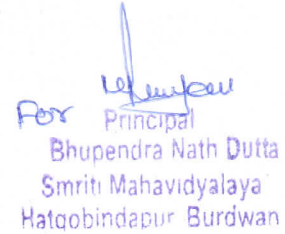 For Principal
Bhupendra Nath Dutta
Smriti Mahavidyalaya
Hatgobindapur Burdwan